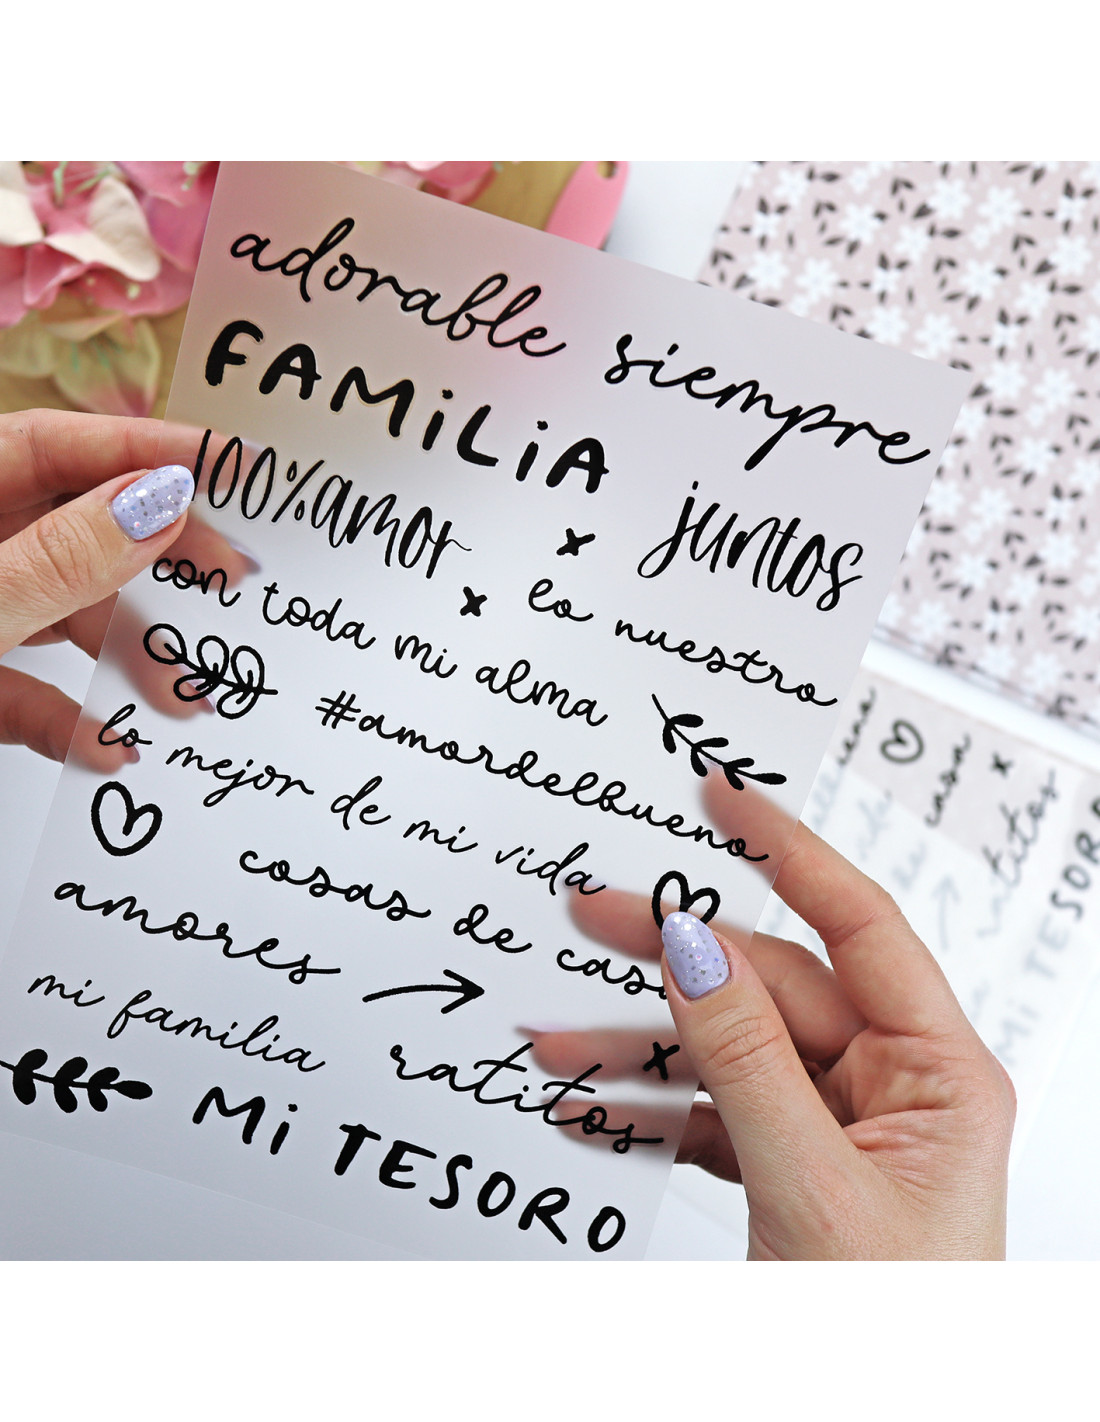 adorable siempre
FAMiLiA
100%amor juntos
con toda mi alma lo nuestro
#amordelbueno
lo mejor de mi vida
cosas de casa
amores
mi familia ratitos
Mi TESORO
casa
ratitos
Mi TESORO